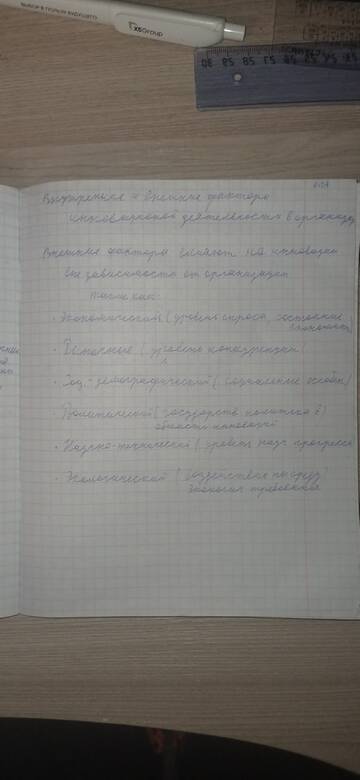 ВЫБОР В ПОЛЬЗУ БУДУЩЕГО
X5Group
Внутренние и внешние факторы
инновационной деятельности в организ
Внешние факторы влияют на инновации
вне зависимости от организации
такие как:
· Экономический (уровень спроса, состояние
экономики)
· Рыночные (уровень конкуренции)
· Соц.-демографический (социальные особен)
Политический (государств. политика в)
области инноваций
· Научно-технический (уровень науч прогресса
· Экологический (воздействие на среду
эколог требования